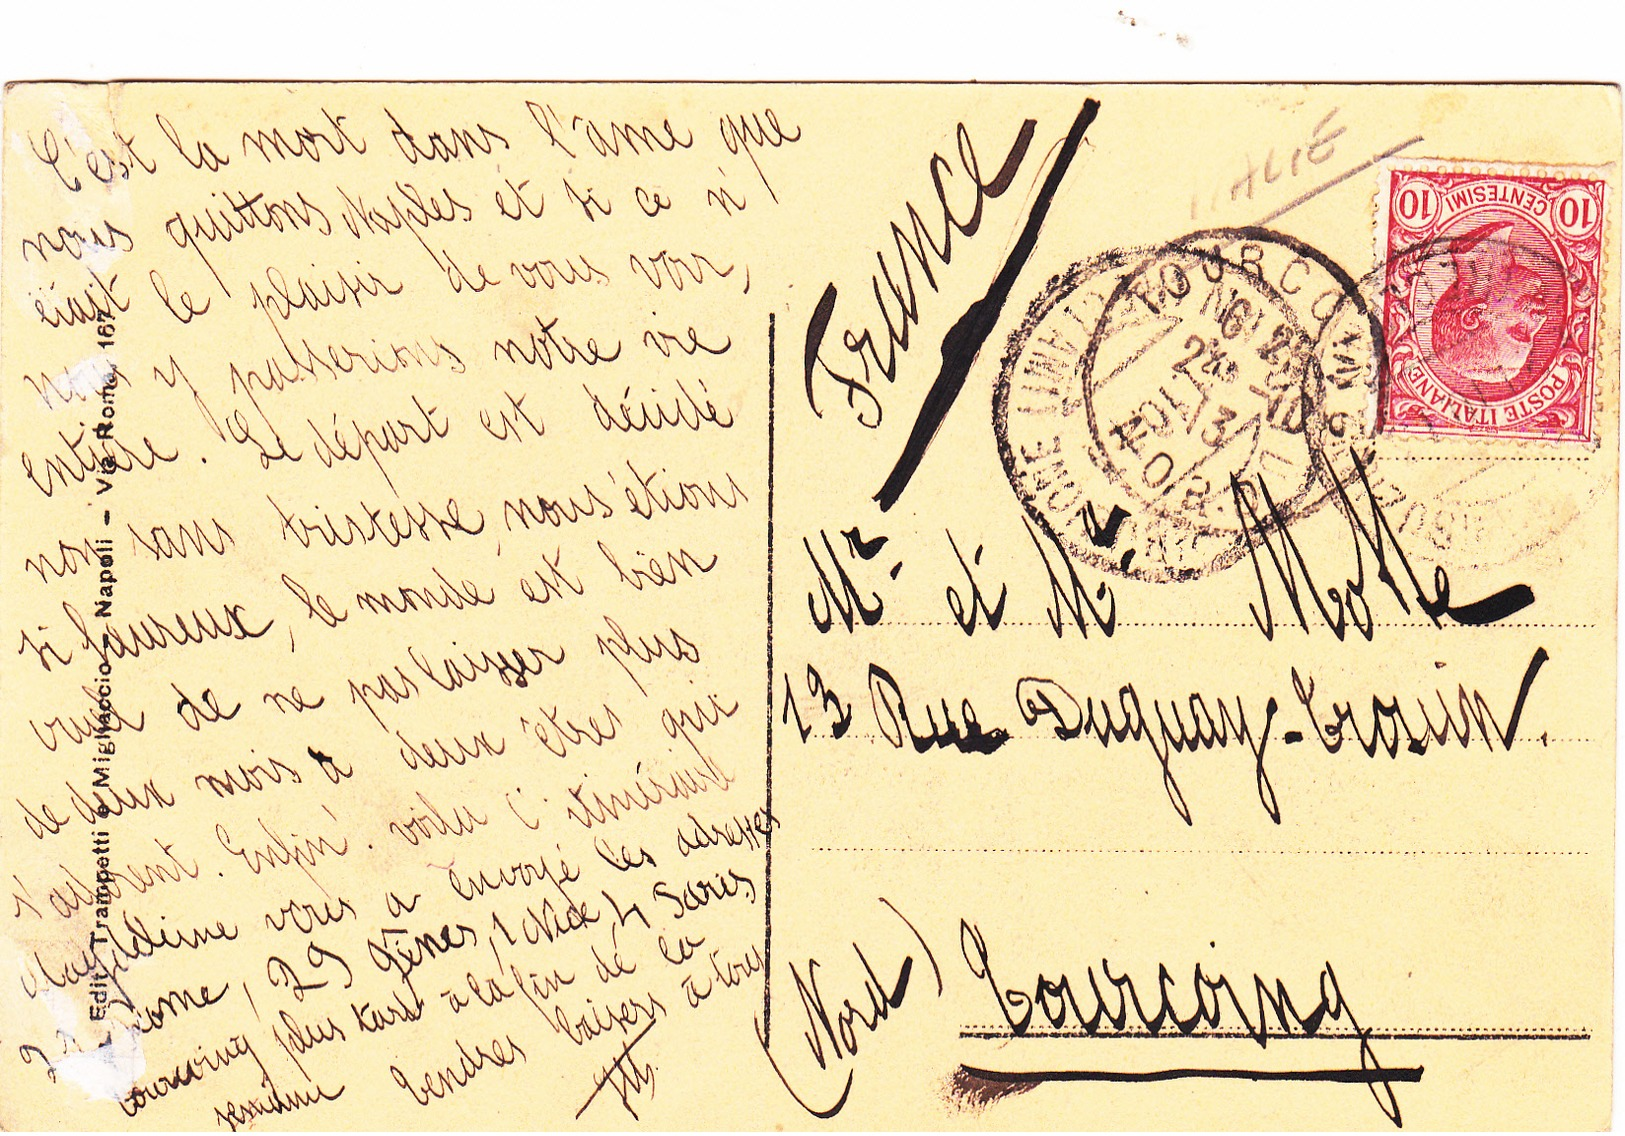 C'est la mort dans l'âme que
nous quittons Naples et si ce n'
était le plaisir de vous voir,
nous y passerions notre vie
entière. Le départ est décidé
non sans tristesse, nous étions
si heureux, le monde est bien
cruel de ne pas laisser plus
de deux mois à deux êtres qui
s'adorent. Enfin! voilà l'itinéraire
Magdeleine vous a envoyé les adresses
Rome, 29 Gênes, 1 Nice, 4 Paris
tourcoing plus tard à la fin de la
semaine Tendres baisers à tous
Edit. Trampetti e Migliaccio, Napoli – Via Roma, 167
France
ITALIE
10 CENTESIMI 10
POSTE ITALIANE
TOURCOING
NORD
Mr et Me Motte
13 Rue Duguay-Trouin.
(Nord) Tourcoing